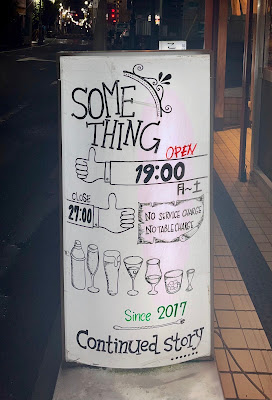 SOME
THING
OPEN
19:00
月~土
CLOSE
27:00
NO SERVICE CHARGE
NO TABLE CHARGE
Since 2017
Continued story